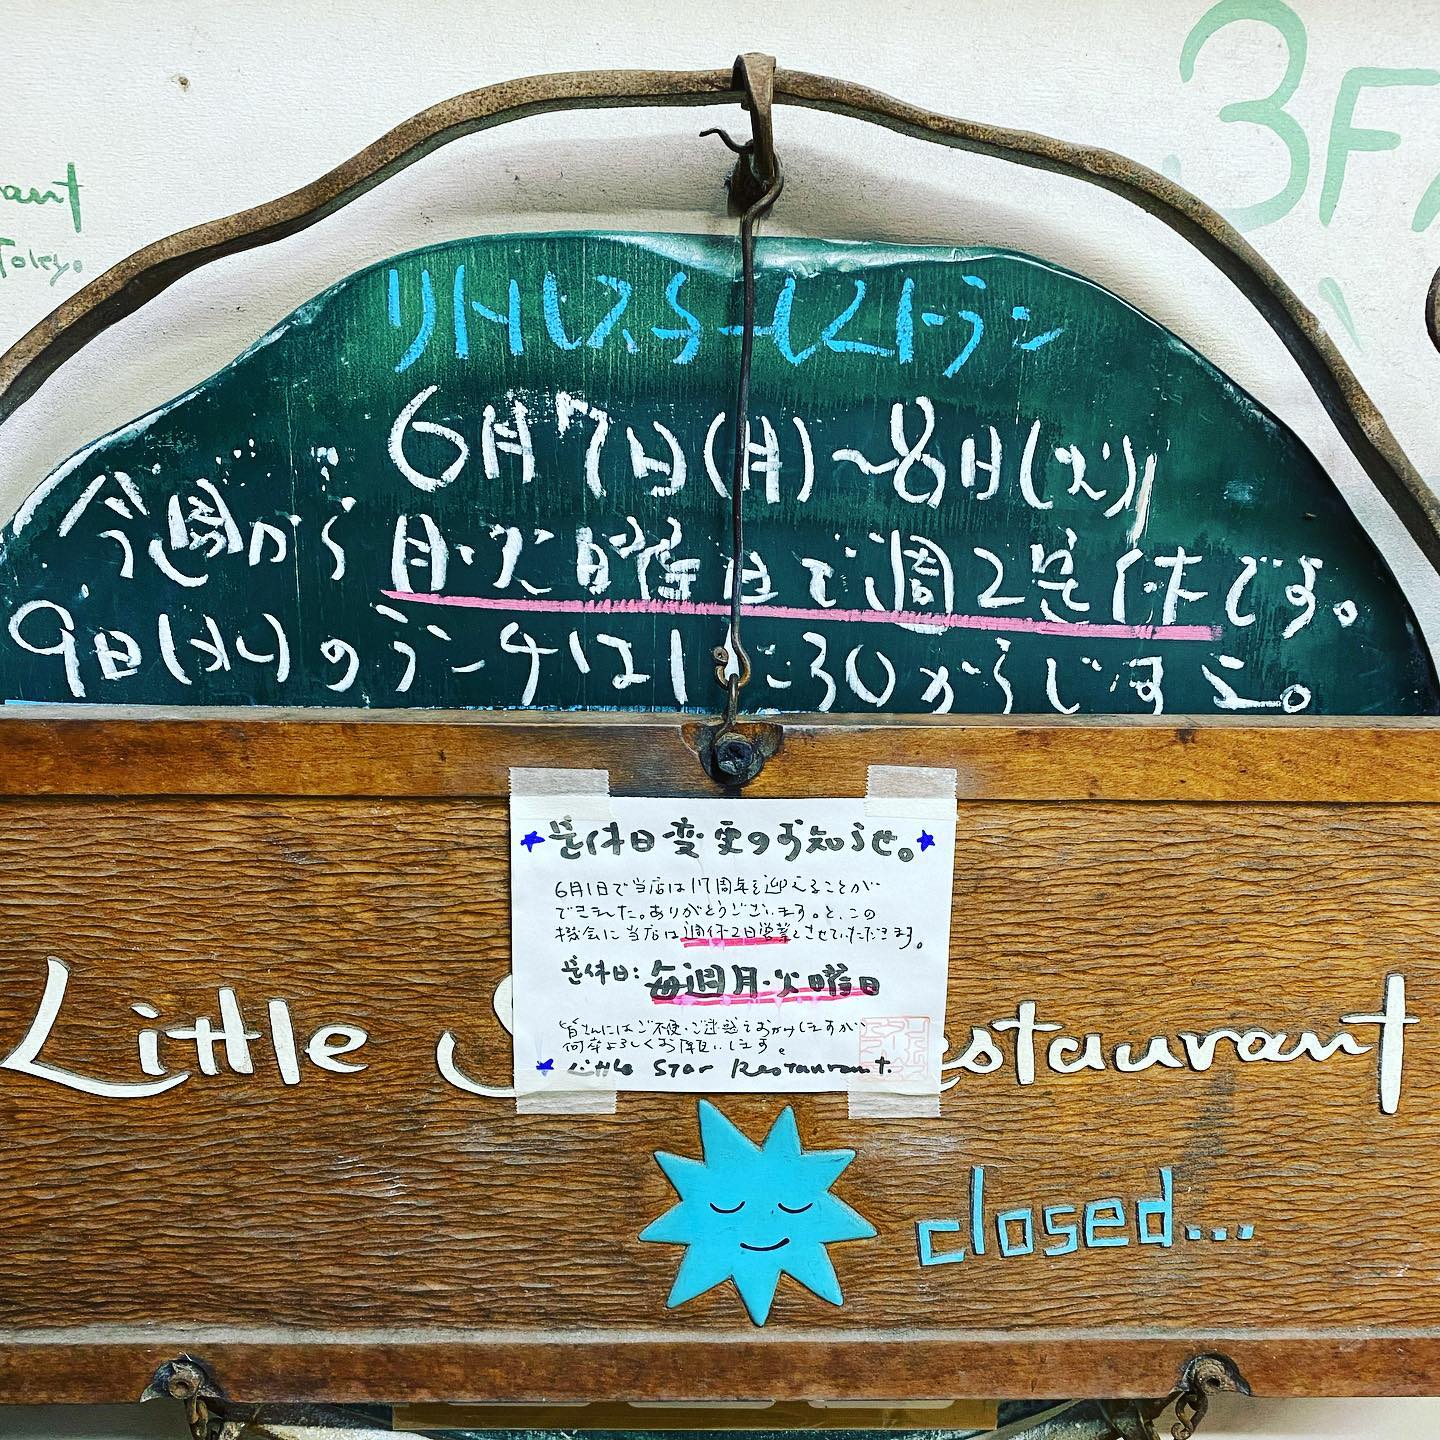 3F
rant
Tokyo
リトルスターレストラン
6月7日(月)〜8日(火)
今週から月・火曜日で週2定休です。
9日(水)のランチは11:30からじすよ。
定休日変更のお知らせ。
6月1日で当店は17周年を迎えることが
できました。ありがとうございます。と、この
機会に当店は週休2日営業とさせていただきます。
定休日:毎週月・火曜日
皆さんにはご不便・ご迷惑をおかけしますが
何卒よろしくお願いします。
Little Star Restaurant.
Little S estaurant
closed...